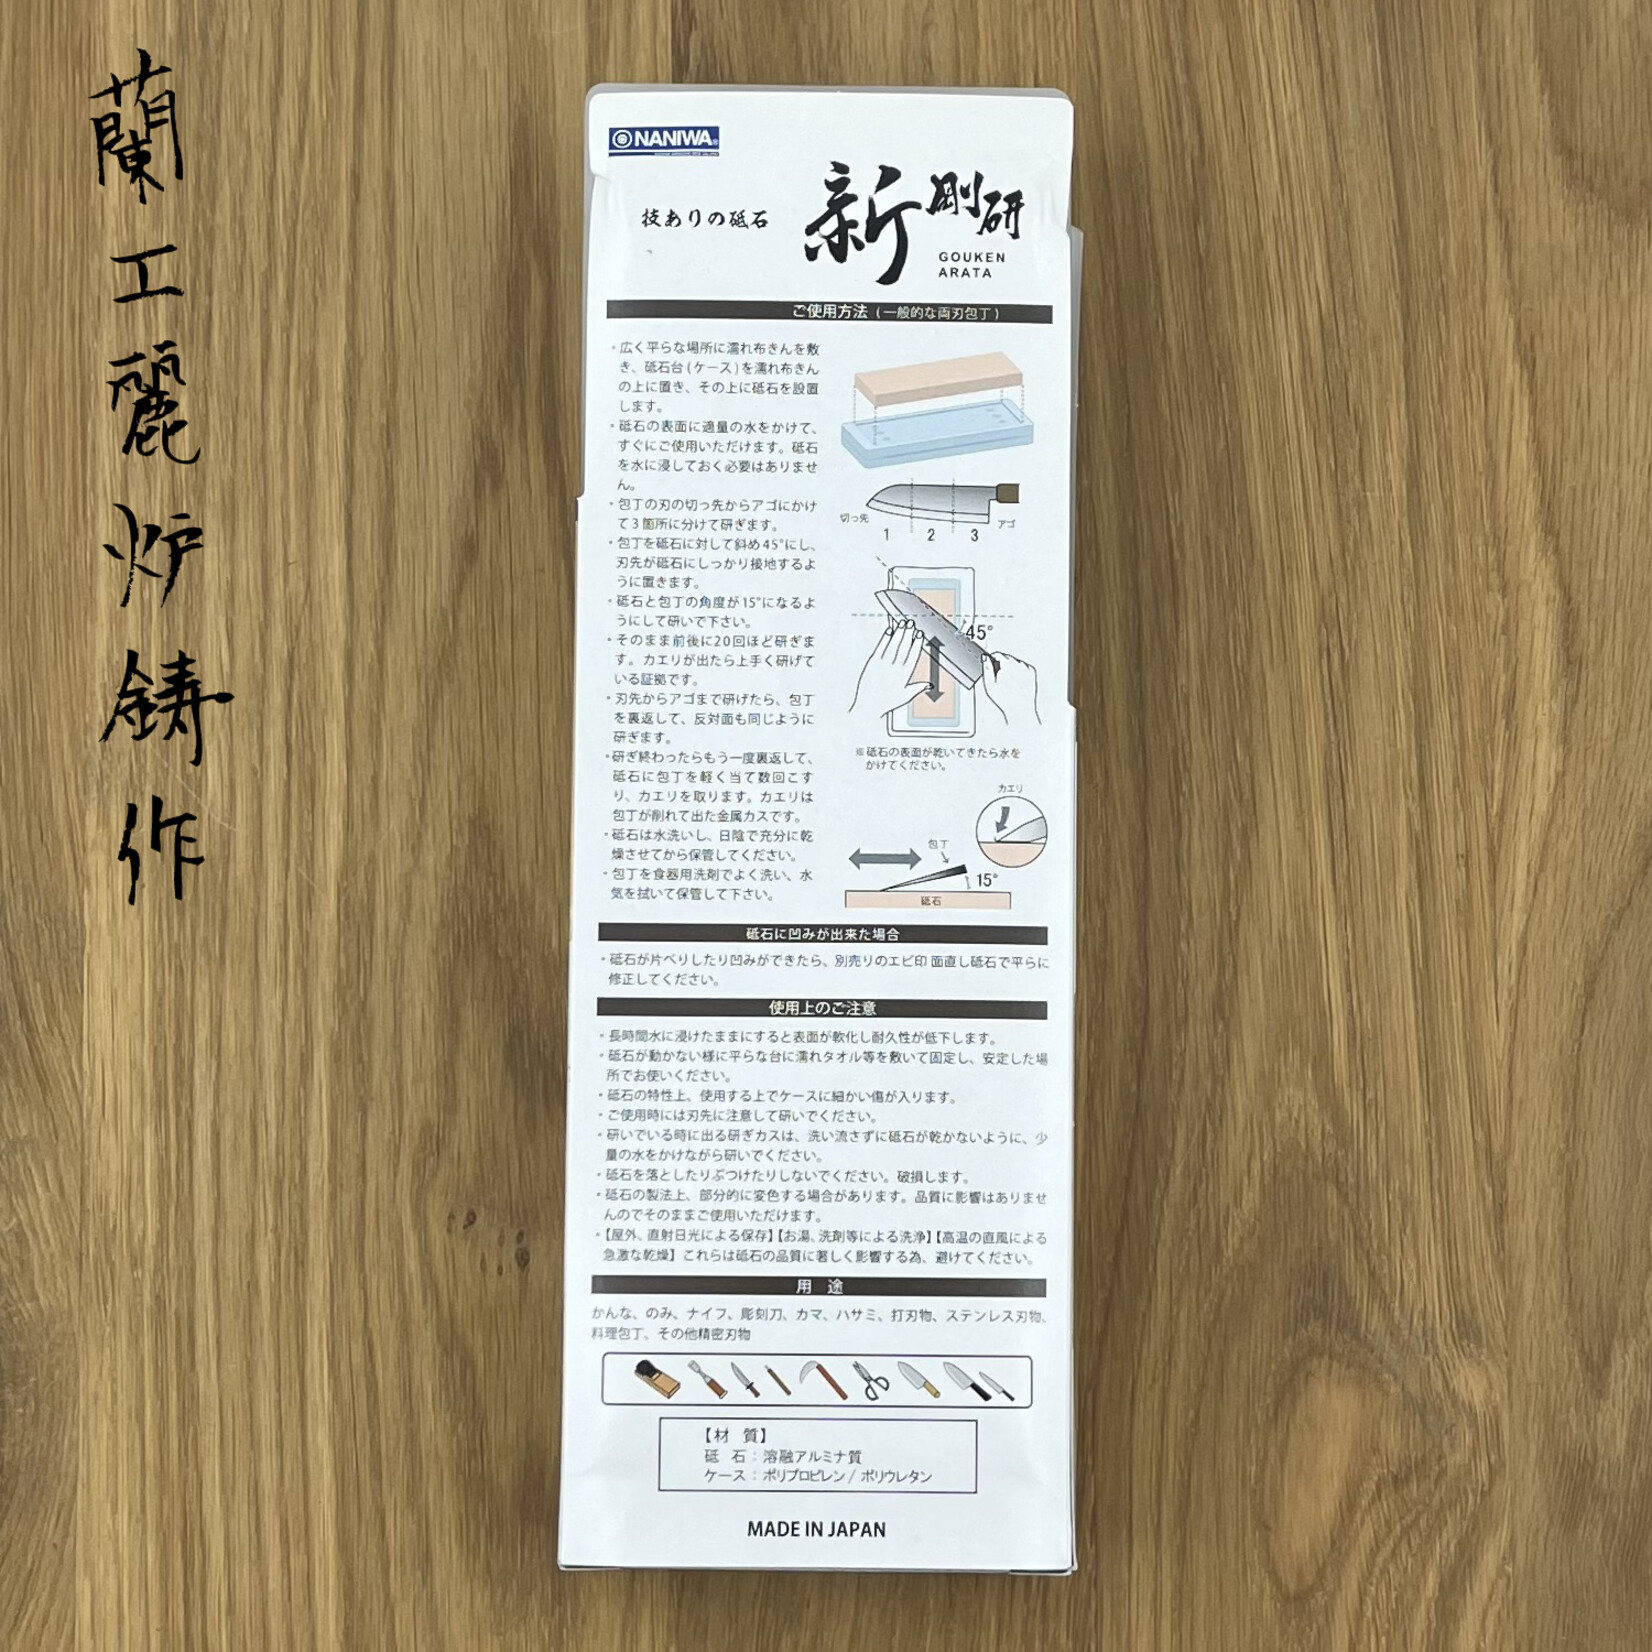 蘭工麗炉鋳作
NANIWA
技ありの砥石
新剛研
GOUKEN
ARATA
ご使用方法（一般的な両刃包丁）
・広く平らな場所に濡れ布きんを敷
き、砥石台(ケース)を濡れ布きん
の上に置き、その上に砥石を設置
します。
・砥石の表面に適量の水をかけて、
すぐにご使用いただけます。砥石
を水に浸しておく必要はありませ
ん。
・包丁の刃の切っ先からアゴにかけ
て3箇所に分けて研ぎます。
・包丁を砥石に対して斜め45°にし、
刃先が砥石にしっかり接地するよ
うに置きます。
・砥石と包丁の角度が15°になるよ
うにして研いで下さい。
・そのまま前後に20回ほど研ぎま
す。カエリが出たら上手く研げて
いる証拠です。
・刃先からアゴまで研げたら、包丁
を裏返して、反対面も同じように
研ぎます。
・研ぎ終わったらもう一度裏返して、
砥石に包丁を軽く当て数回こす
り、カエリを取ります。カエリは
包丁が削れて出た金属カスです。
・砥石は水洗いし、日陰で充分に乾
燥させてから保管してください。
・包丁を食器用洗剤でよく洗い、水
気を拭いて保管して下さい。
切っ先
アゴ
1 2 3
45°
※砥石の表面が乾いてきたら水を
かけてください。
カエリ
包丁
15°
砥石
砥石に凹みが出来た場合
・砥石が片べりしたり凹みができたら、別売りのエビ印 面直し砥石で平らに
修正してください。
使用上のご注意
・長時間水に浸けたままにすると表面が軟化し耐久性が低下します。
・砥石が動かない様に平らな台に濡れタオル等を敷いて固定し、安定した場
所でお使いください。
・砥石の特性上、使用する上でケースに細かい傷が入ります。
・ご使用時には刃先に注意して研いでください。
・研いでいる時に出る研ぎカスは、洗い流さずに砥石が乾かないように、少
量の水をかけながら研いでください。
・砥石を落としたりぶつけたりしないでください。破損します。
・砥石の製法上、部分的に変色する場合があります。品質に影響はありませ
んのでそのままご使用いただけます。
・【屋外、直射日光による保存】【お湯、洗剤等による洗浄】【高温の直風による
急激な乾燥】これらは砥石の品質に著しく影響する為、避けてください。
用　途
かんな、のみ、ナイフ、彫刻刀、カマ、ハサミ、打刃物、ステンレス刃物、
料理包丁、その他精密刃物
【材　質】
砥　石：溶融アルミナ質
ケース：ポリプロピレン / ポリウレタン
MADE IN JAPAN